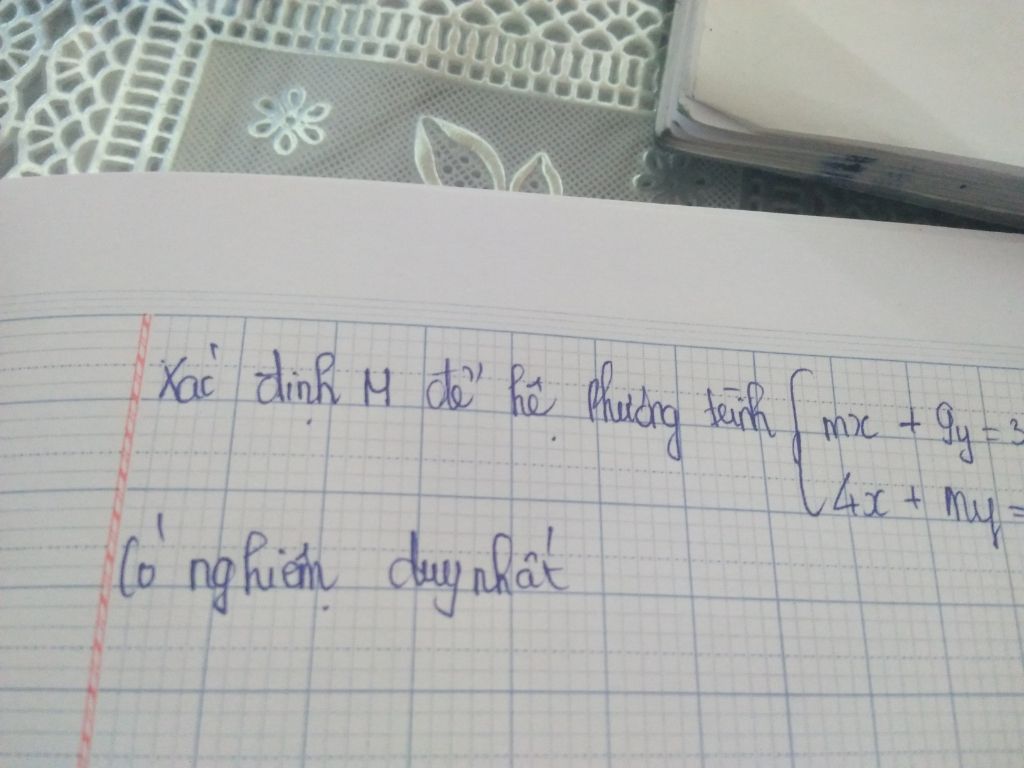 Xác định M để hệ phương trình { mx + 9y = 3
4x + my =
Có nghiệm duy nhất